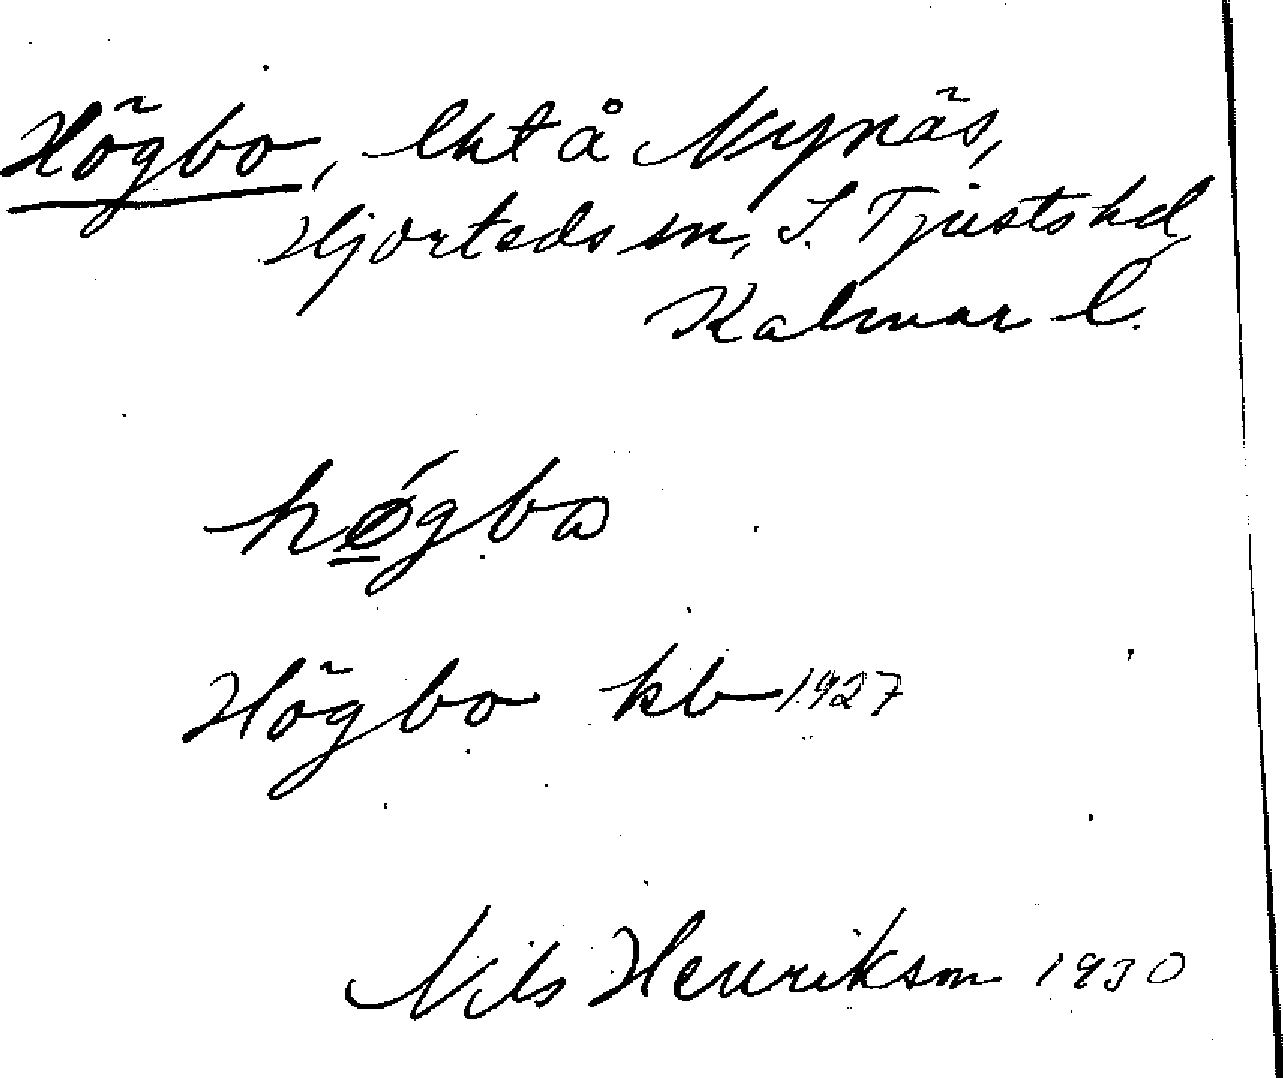 Högbo, lht å Nynäs,
Hjorteds sn, S. Tjusts hd
Kalmar l.
hǿgbo
Högbo kb 1927
Nils Henrikson 1930